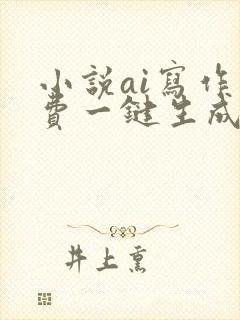 小說ai寫作
費一鍵生成
井上熏